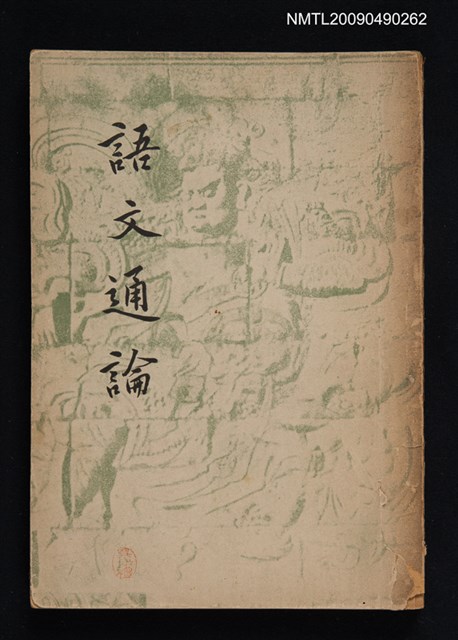 NMTL20090490262
語文通論